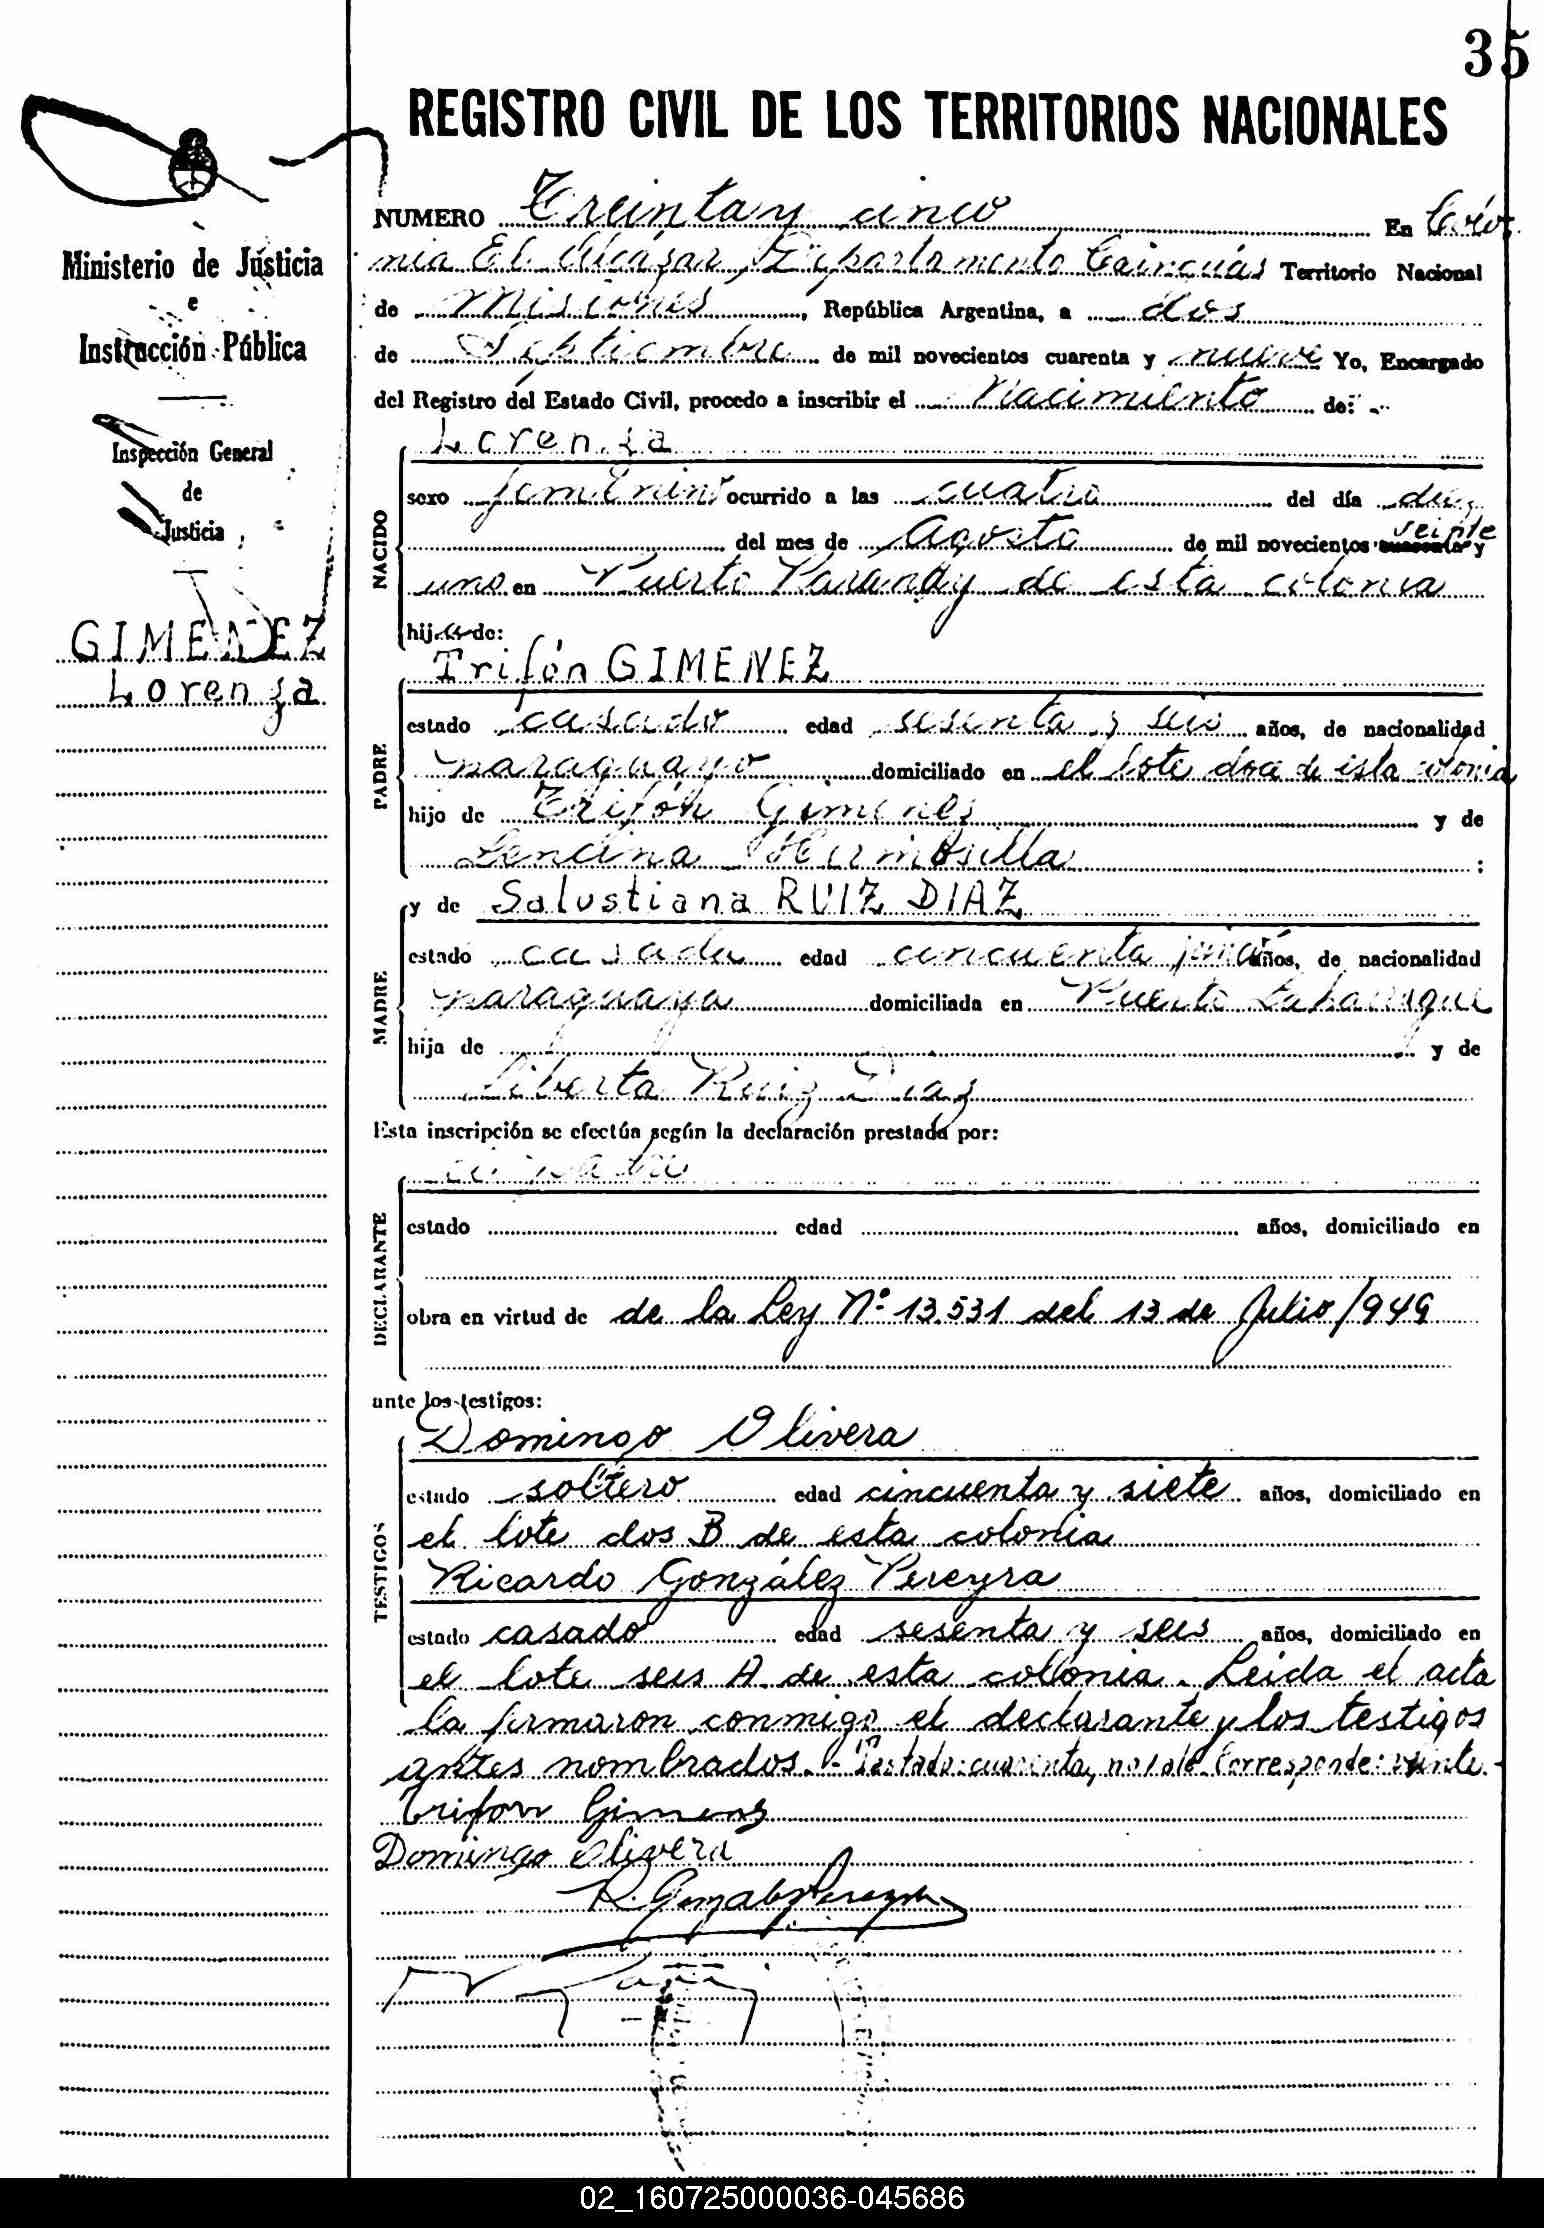 35
REGISTRO CIVIL DE LOS TERRITORIOS NACIONALES
Ministerio de Justicia
e
Instrucción Pública
Inspección General
de
Justicia
GIMENEZ
Lorenza
NUMERO Treinta y cinco En Colo-
nia El Alcázar, Departamento Cainguás Territorio Nacional
de Misiones, República Argentina, a dos
de Septiembre de mil novecientos cuarenta y nueve Yo, Encargado
del Registro del Estado Civil, procedo a inscribir el Nacimiento de:
NACIDO
Lorenza
sexo femenino ocurrido a las cuatro del día diez
del mes de Agosto de mil novecientos cuarenta veinte y
uno en Puerto Naranday de esta colonia
hija de:
PADRE
Trifón GIMENEZ
estado casado edad sesenta y seis años, de nacionalidad
paraguayo domiciliado en el lote doce de esta colonia
hijo de Trifón Gimenez y de
Hermosilla;
MADRE
y de Salustiana RUIZ DIAZ
estado casada edad cincuenta años, de nacionalidad
paraguaya domiciliada en Puerto
hija de y de
Liberta Ruiz Diaz
Esta inscripción se efectúa según la declaración prestada por:
DECLARANTE
estado edad años, domiciliado en
obra en virtud de de la Ley Nº 13.531 del 13 de Julio/949
ante los testigos:
TESTIGOS
Domingo Olivera
estado soltero edad cincuenta y siete años, domiciliado en
el lote dos B de esta colonia
Ricardo González Pereyra
estado casado edad sesenta y seis años, domiciliado en
el lote seis A de esta colonia. Leida el acta
la firmaron conmigo el declarante y los testigos
antes nombrados.- Testado: cuarenta, no vale. Corresponde: veinte.-
Trifon Gimenez
Domingo Olivera
R. Gonzalez Pereyra
02_160725000036-045686